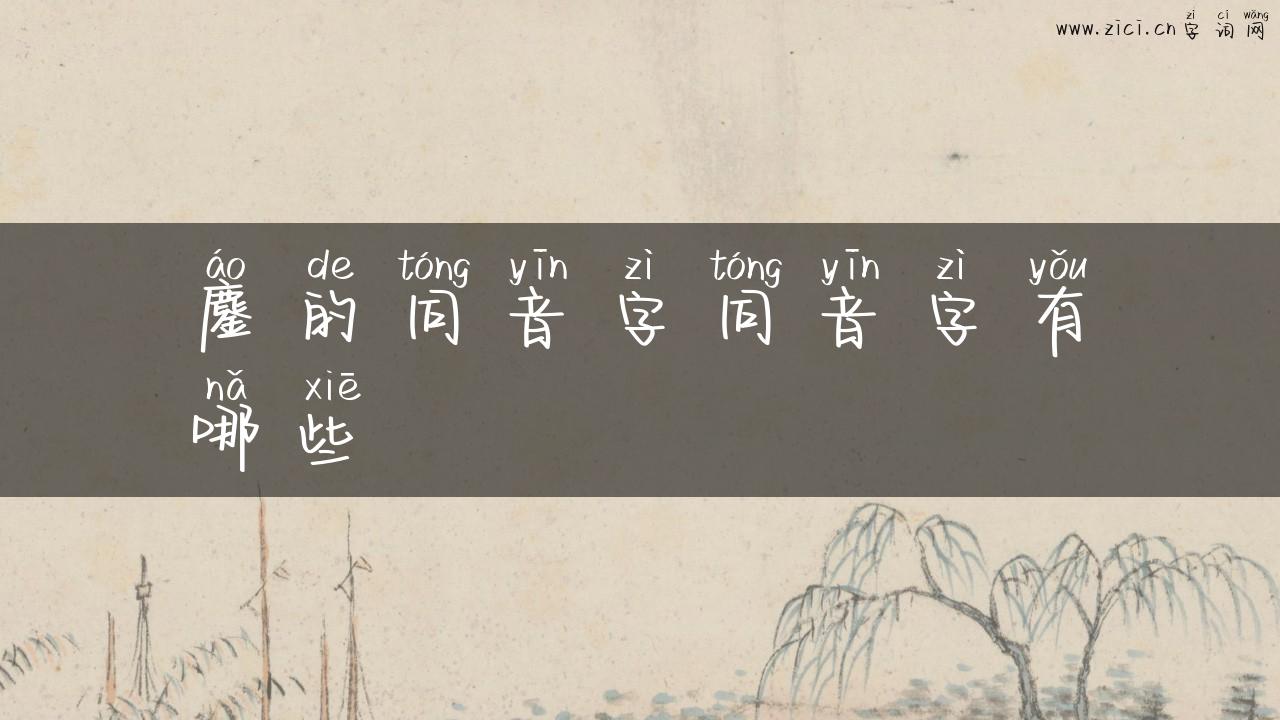 zì cí wǎng
www.zici.cn 字词网
áo de tóng yīn zì tóng yīn zì yǒu
鏖的同音字同音字有
nǎ xiē
哪些